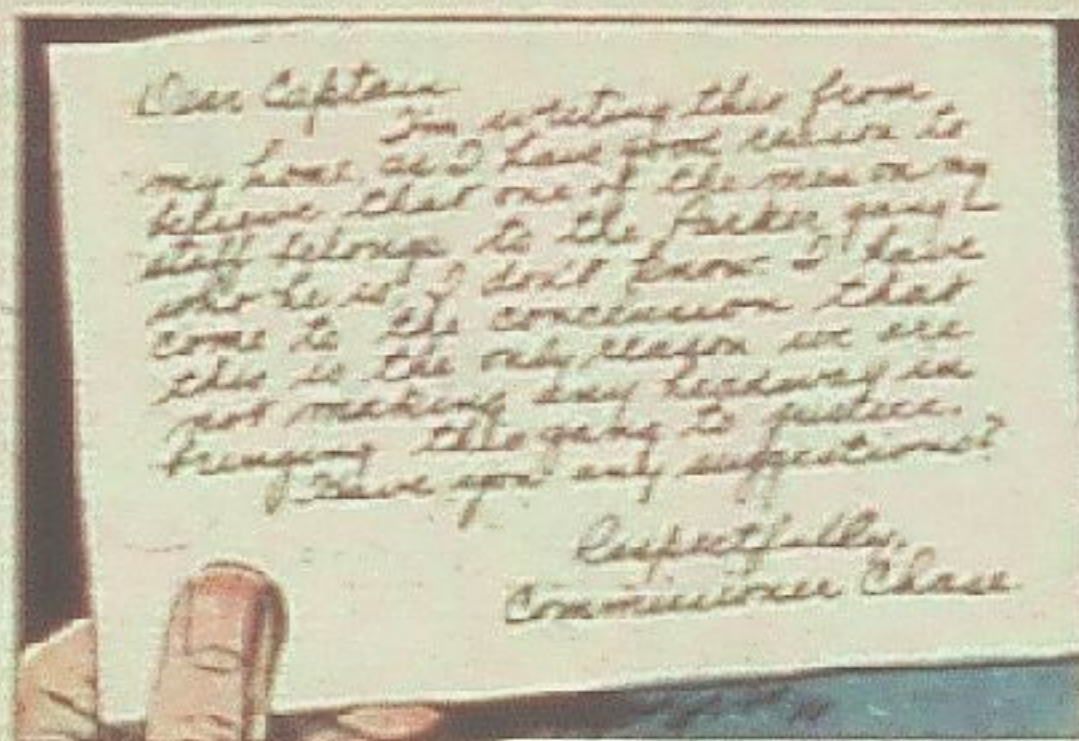 Dear Captain
I'm writing this from
my home as I have good reason to
believe that one of the men on my
staff belongs to the Parker gang -
who he is I don't know - I have
come to the conclusion that
this is the only reason we are
not making any headway in
bringing this gang to justice.
Have you any suggestions?
Respectfully,
Commissioner Chase